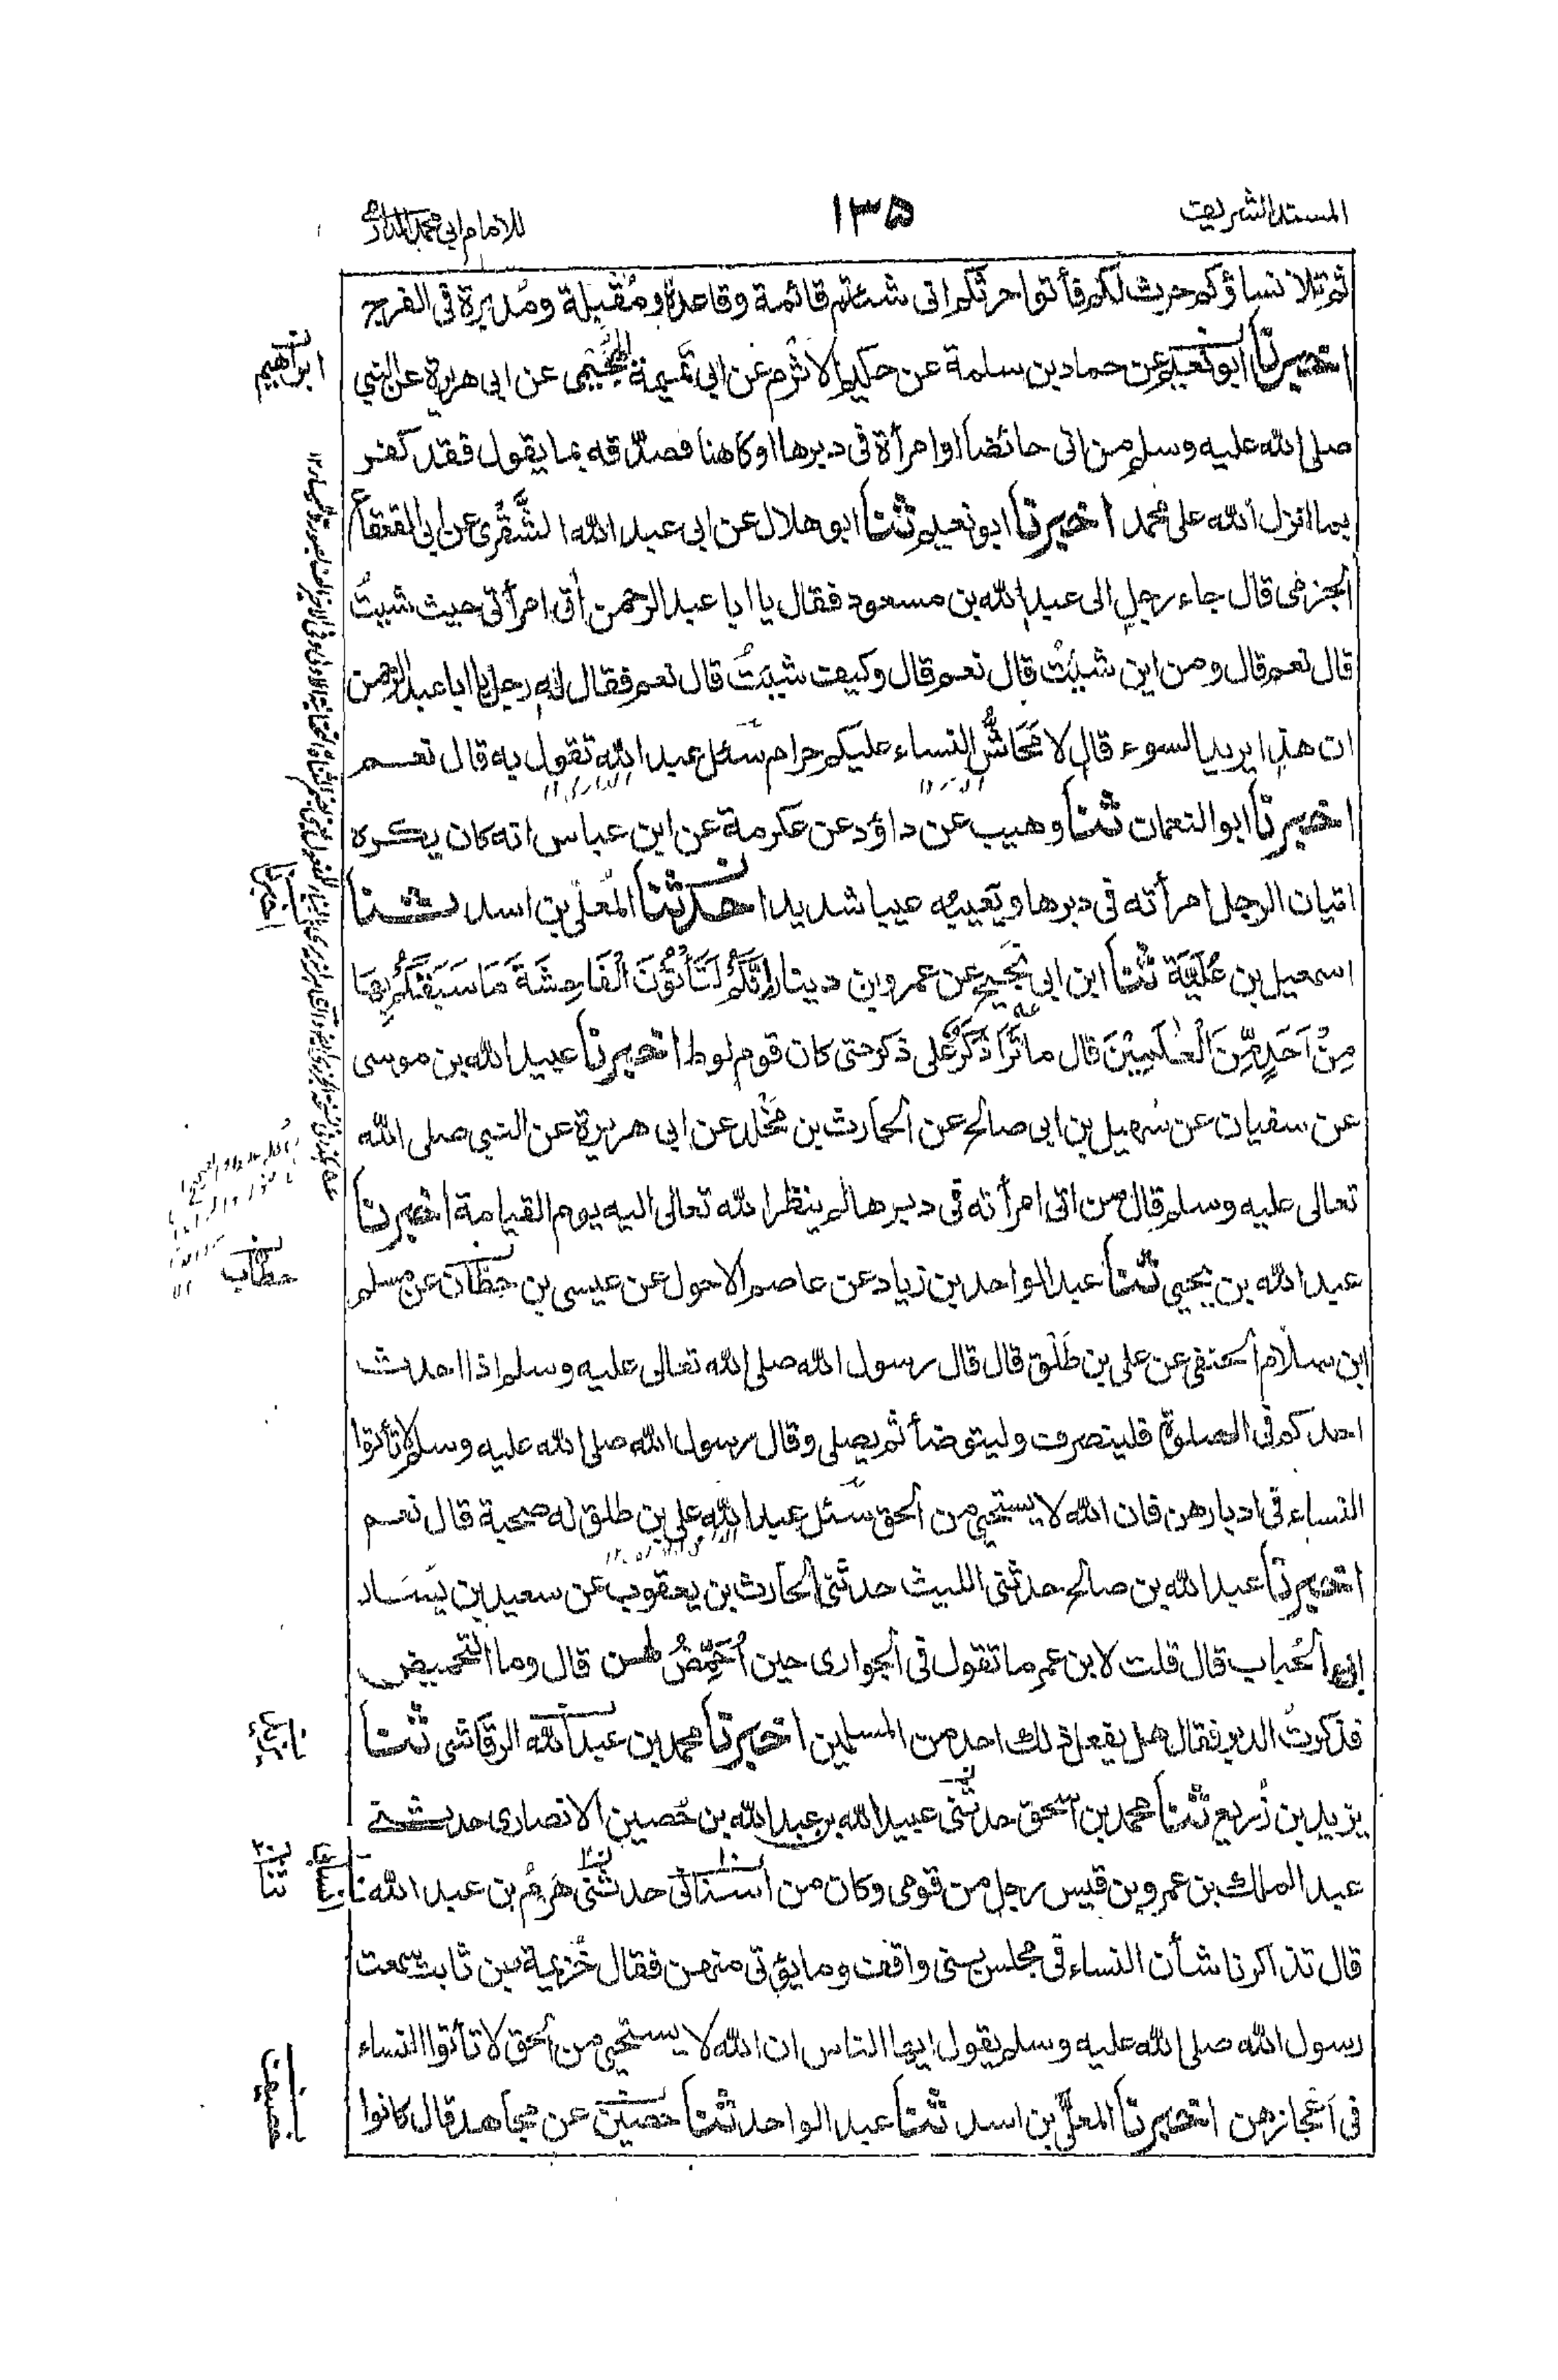 المسند الشريف
١٣٥
للامام ابي محمد الدارمي
ثم تلا نساؤكم حرث لكم فأتوا حرثكم انى شئتم قائمة وقاعدة ومُقْبِلة ومُدبِرة في الفرج
اخبرنا ابو نعيم عن حماد بن سلمة عن حكيم الاثرم عن ابي تَمِيمة الهُجَيمي عن ابي هريرة عن النبي
ابراهيم
صلى الله عليه وسلم من اتى حائضا او امرأة في دبرها او كاهنا فصدّقه بما يقول فقد كفر
بما انزل الله على محمد اخبرنا ابو نعيم ثنا ابو هلال عن ابي عبد الله الشَّقَرى عن ابي القعقاع
الجرمى قال جاء رجل الى عبد الله بن مسعود فقال يا ابا عبد الرحمن أتى امرأتي حيث شيتُ
قال نعم قال ومن اين شيتُ قال نعم قال وكيف شيتُ قال نعم فقال له رجل يا ابا عبد الرحمن
ان هذا يريد السوء قال لا مَحَاشُّ النساء عليكم حرام سئل عبد الله تقول به قال نعم
اخبرنا ابو النعمان ثنا وهيب عن داؤد عن عكرمة عن ابن عباس انه كان يكره
اتيان الرجل امرأته في دبرها ويَعِيبه عيبا شديدا حدثنا المُعلّى بن اسد ثنا
اخبرنا
اسمعيل بن عُلَيَّة ثنا ابن ابي نَجيح عن عمرو بن دينار اِنَّكُمْ لَتَأْتُوْنَ الْفَاحِشَةَ مَا سَبَقَكُمْ بِهَا
مِنْ اَحَدٍ مِّنَ الْعٰلَمِيْنَ قال ما نَزَا ذَكَرٌ على ذكر حتى كان قوم لوط اخبرنا عبيد الله بن موسى
عن سفيان عن سُهيل بن ابي صالح عن الحارث بن مُخَلَّد عن ابي هريرة عن النبي صلى الله
تعالى عليه وسلم قال من اتى امرأته في دبرها لم ينظر الله تعالى اليه يوم القيامة اخبرنا
عبد الله بن يحيى ثنا عبد الواحد بن زياد عن عاصم الاحول عن عيسى بن حِطّان عن مسلم
حطاب
ابن سلّام الحنفى عن على بن طَلْق قال قال رسول الله صلى الله تعالى عليه وسلم اذا احدث
احدكم في الصلوة فلينصرف وليتوضأ ثم يصلى وقال رسول الله صلى الله عليه وسلم لا تأتوا
النساء في ادبارهن فان الله لا يستحيي من الحق سئل عبد الله على بن طلق له صحبة قال نعم
اخبرنا عبد الله بن صالح حدثني الليث حدثني الحارث بن يعقوب عن سعيد بن يَسَار
ابي الحُباب قال قلت لابن عمر ما تقول في الجوارى حين اُحَمِّضُ لهن قال وما التحميض
فذكرتُ الدبر فقال هل يفعل ذلك احد من المسلمين اخبرنا محمد بن عبد الله الرقاشى ثنا
يزيد بن زُريع ثنا محمد بن اسحق حدثني عبيد الله بن عبد الله بن حُصين الانصارى حدثني
عبد الملك بن عمرو بن قيس رجل من قومى وكان من اسنانى حدثني هَرَمِيُّ بن عبد الله
ثنا
قال تذاكرنا شأن النساء في مجلس بنى واقف وما يؤتى منهن فقال خُزيمة بن ثابت سمعت
رسول الله صلى الله عليه وسلم يقول ايها الناس ان الله لا يستحيي من الحق لا تأتوا النساء
في اَعْجازهن اخبرنا المعلَّى بن اسد ثنا عبد الواحد ثنا حصين عن مجاهد قال كانوا
خصيف